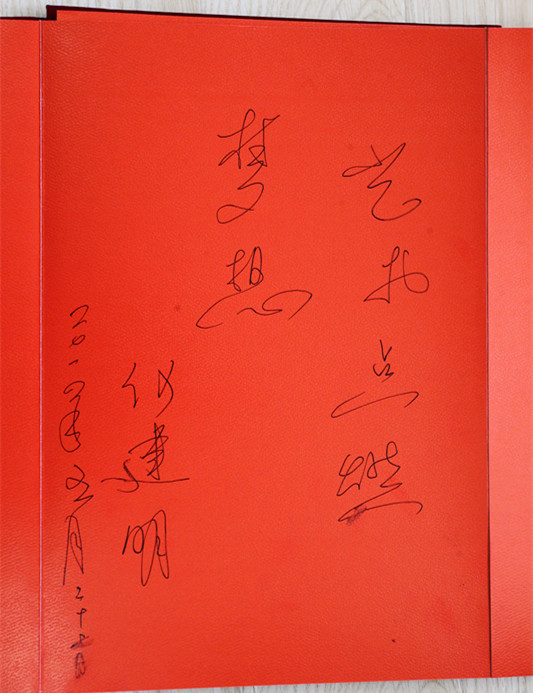 艺术点燃
梦想
何建明
二〇一四年五月二十日